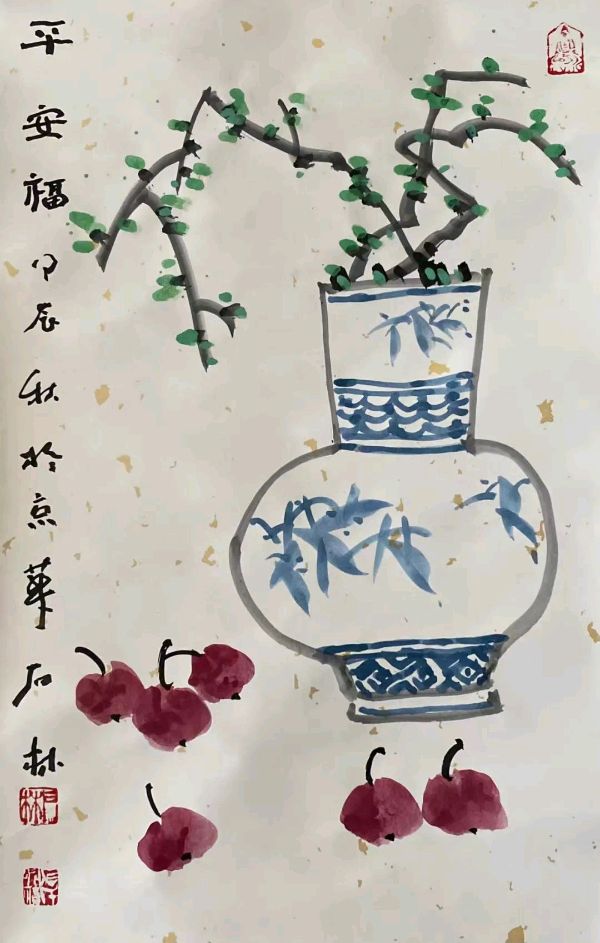 平安福甲辰秋於京華石林